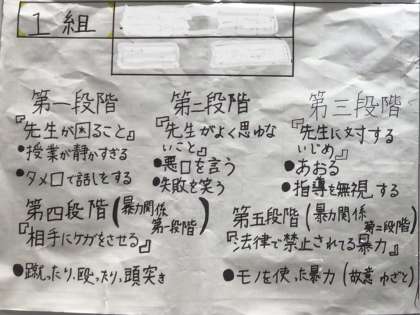 1組
第一段階
『先生が困ること』
●授業が静かすぎる
●タメ口で話しをする
第二段階
『先生がよく思わないこと』
●悪口を言う
●失敗を笑う
第三段階
『先生に対するいじめ』
●あおる
●指導を無視する
第四段階(暴力関係 第一段階)
『相手にケガをさせる』
●蹴ったり、殴ったり、頭突き
第五段階(暴力関係 第二段階)
『法律で禁止されてる暴力』
●モノを使った暴力(故意 わざと)